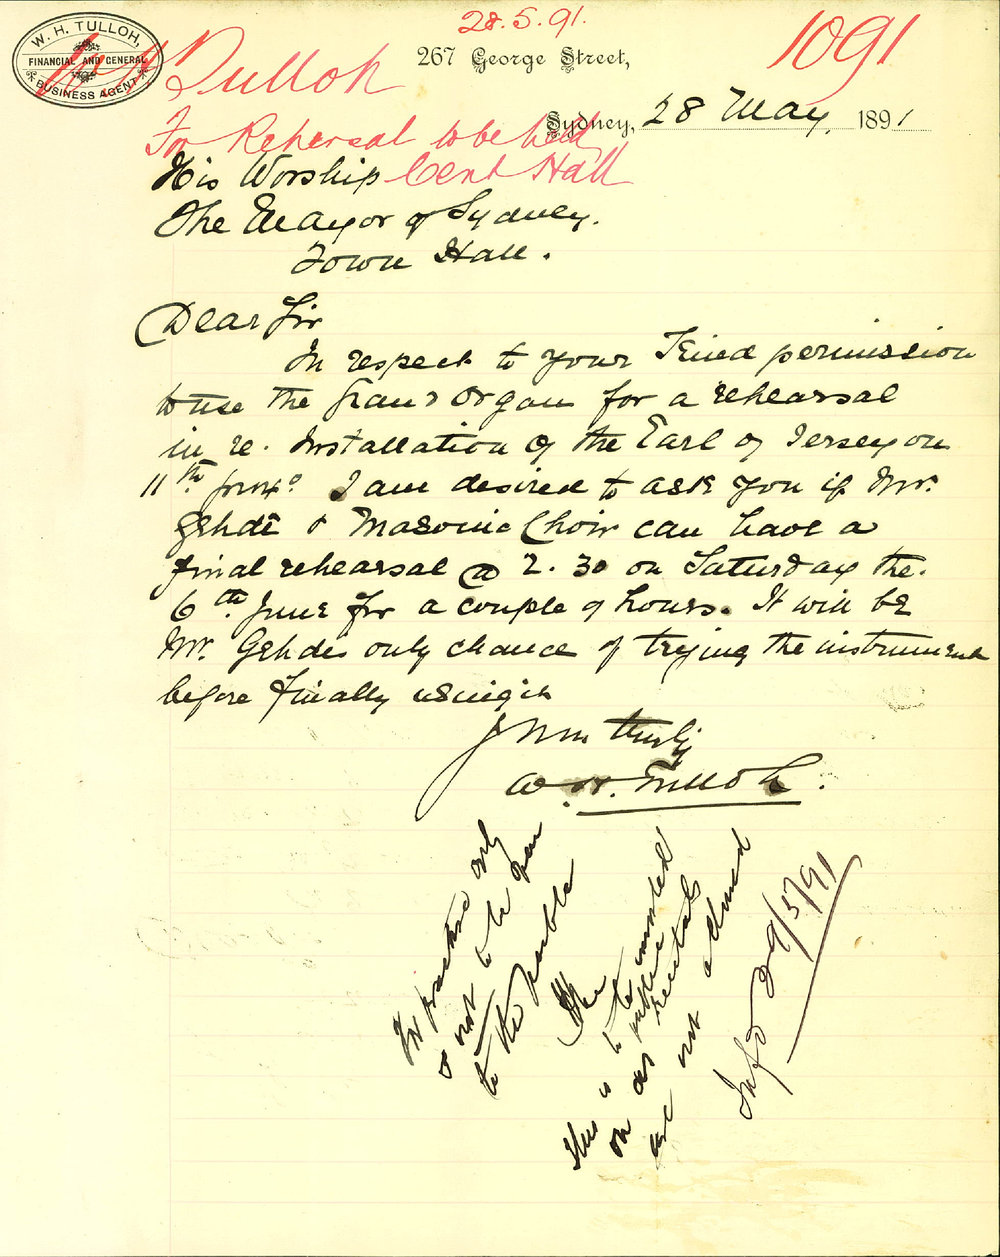 W. H. TULLOH,
FINANCIAL AND GENERAL
BUSINESS AGENT
28.5.91.
1091
267 George Street,
W H Tulloh
Sydney, 28 May 1891
For Rehersal to be held
Cent Hall
His Worship
The Mayor of Sydney.
Town Hall.
Dear Sir
In respect to your Kind permission
to use the Grand Organ for a rehearsal
in re. Installation of the Earl of Jersey on
11th proxo. I am desired to ask you if Mr.
Gehde & Masonic Choir can have a
final rehearsal @ 2.30 on Saturday the.
6th June for a couple of hours. It will be
Mr. Gehdes only chance of trying the instrument
before finally using it
Yours truly
W. H. Tulloh.
For practice only
& not to be open
to the public
This is to be
on as public recitals
are not allowed
Infd 29/5/91